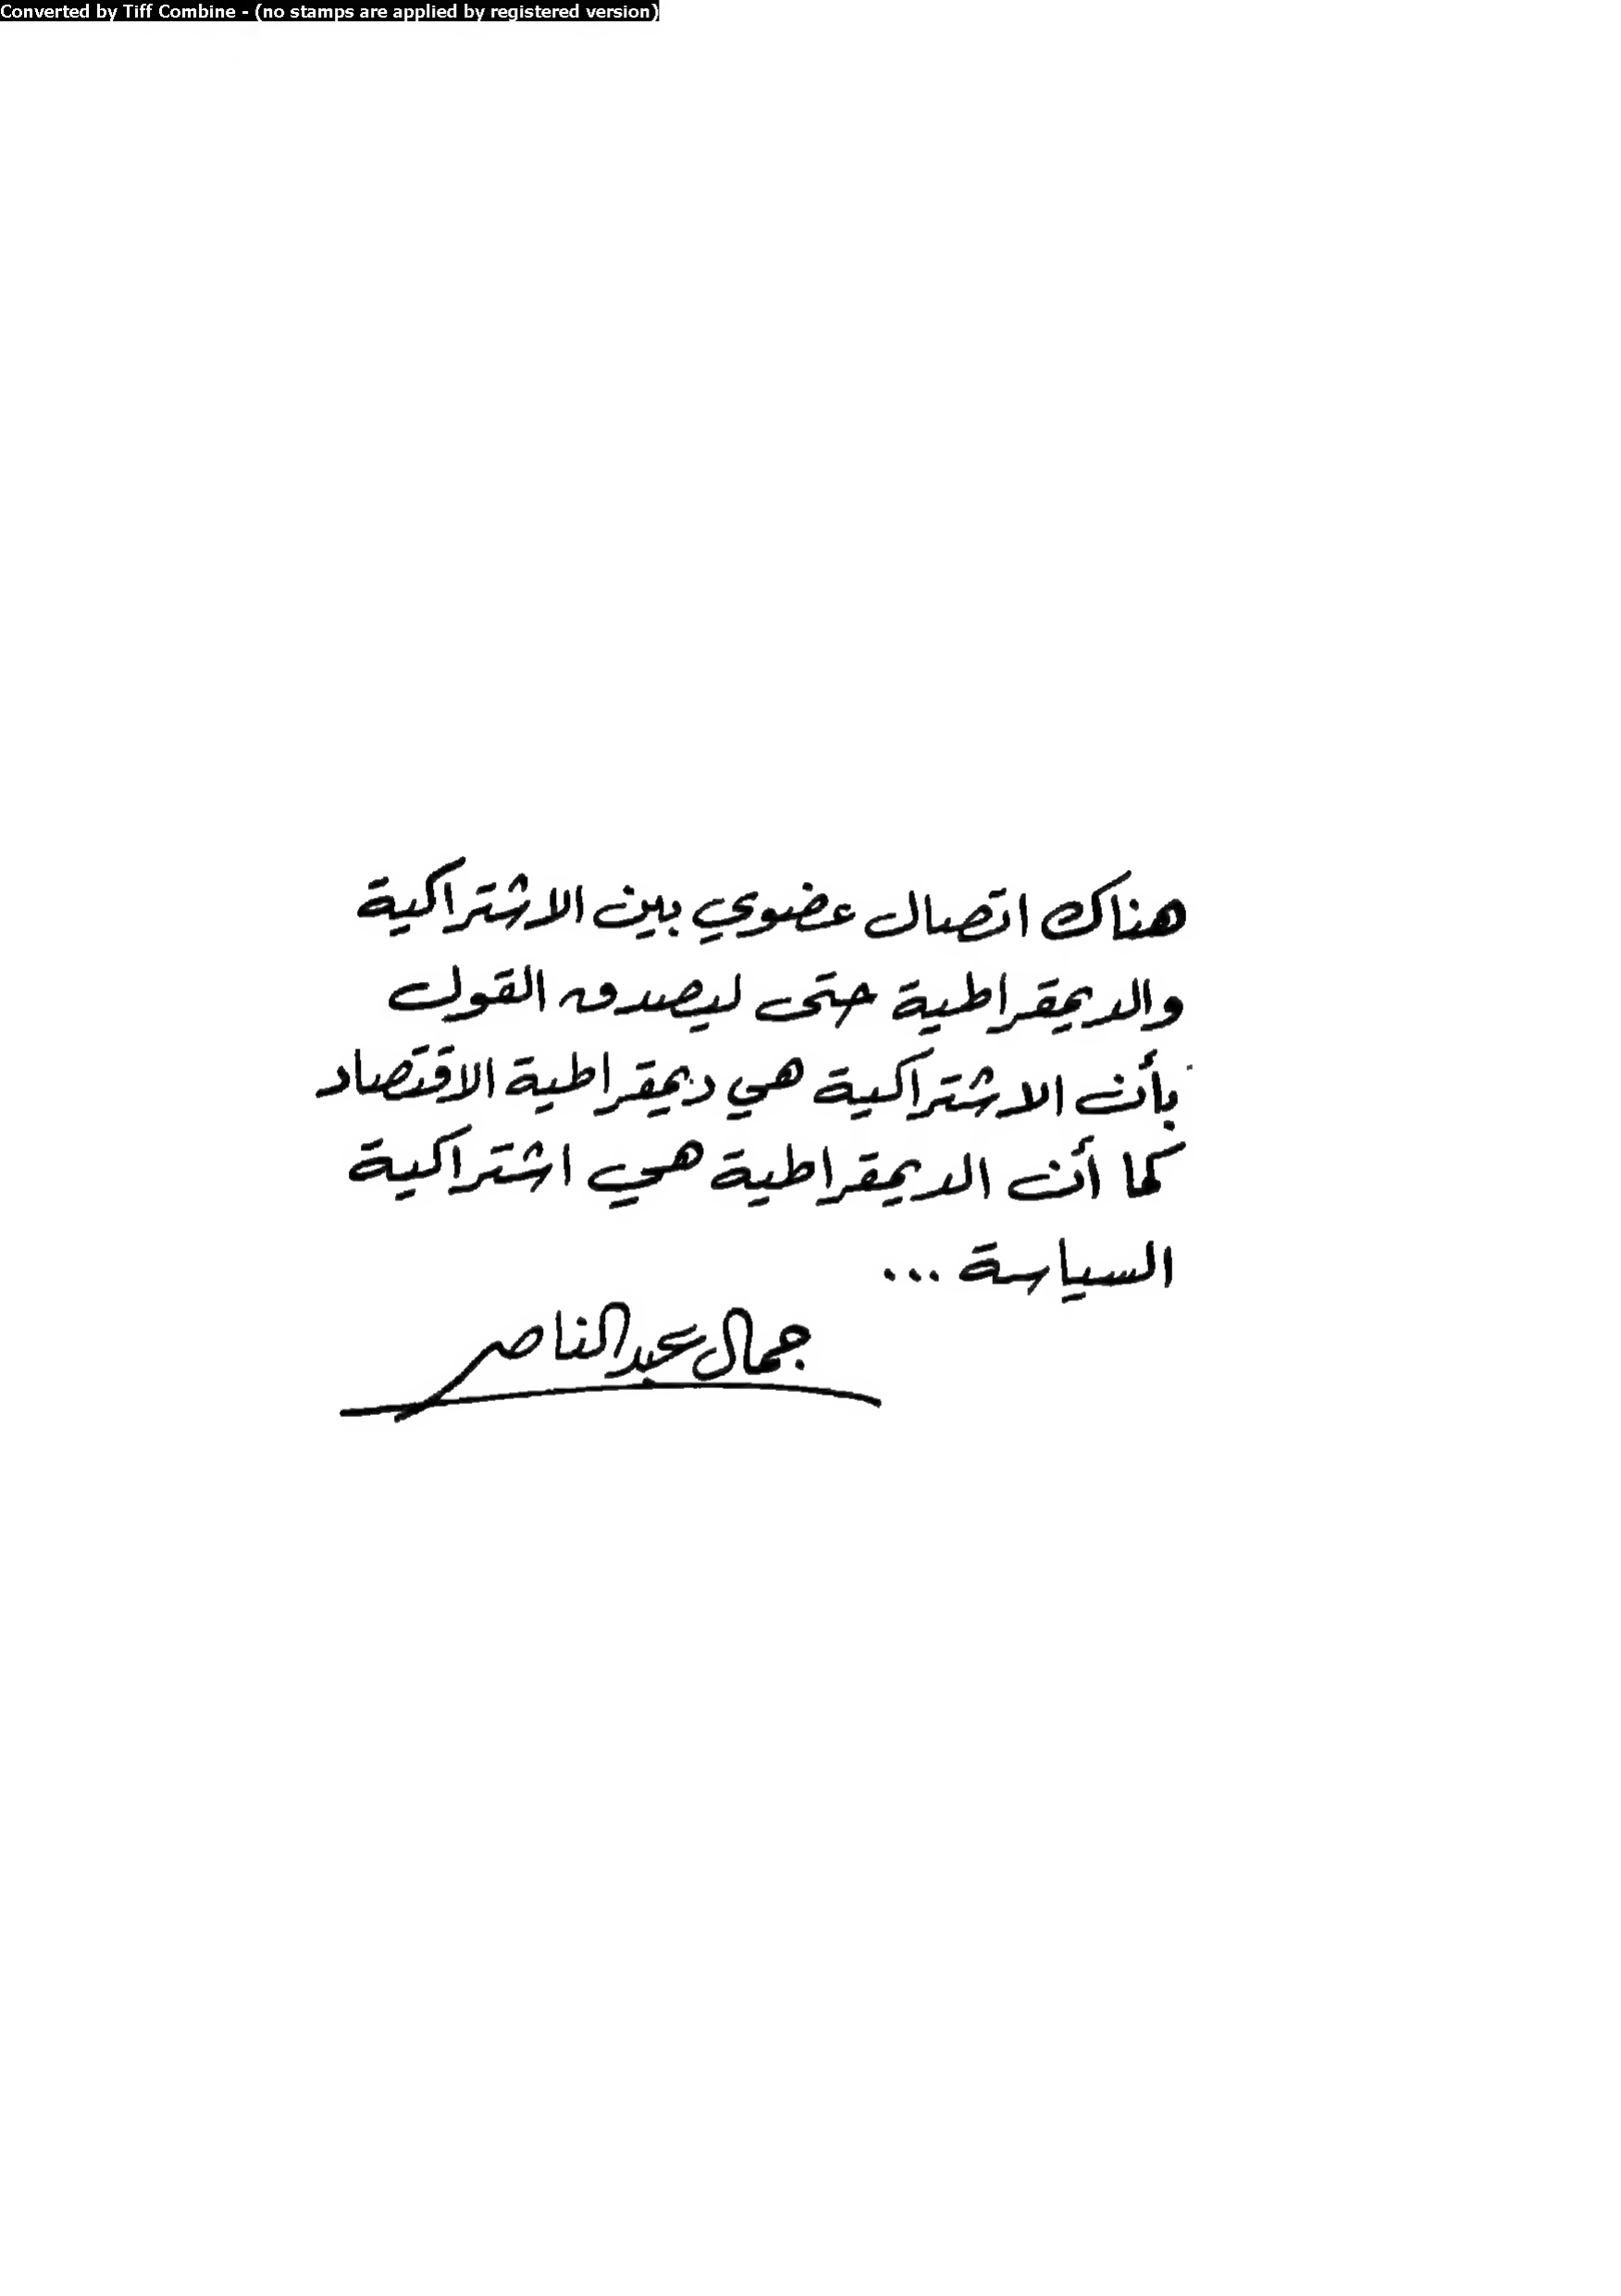 Converted by Tiff Combine - (no stamps are applied by registered version)
هناك اتصال عضوي بين الاشتراكية
والديمقراطية حتى ليصدق القول
بأن الاشتراكية هي ديمقراطية الاقتصاد
كما أن الديمقراطية هي اشتراكية
السياسة ...
جمال عبد الناصر